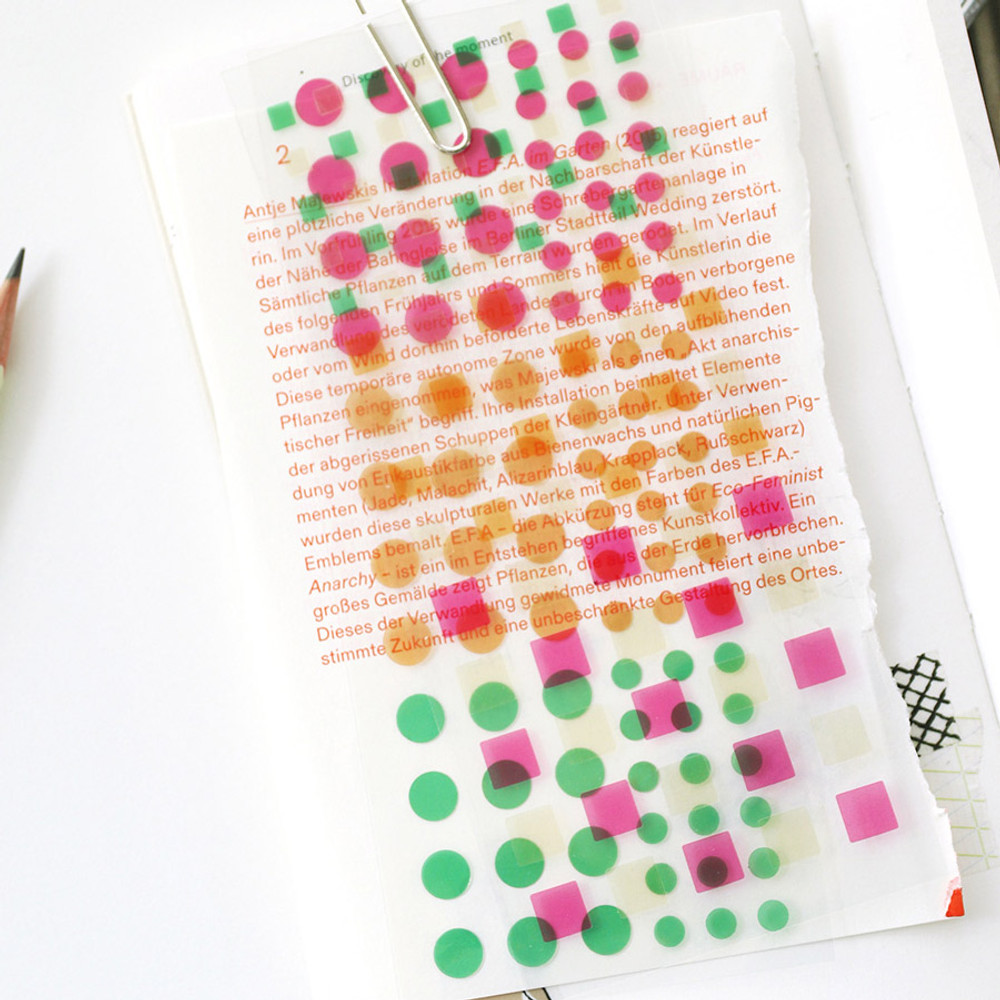 Discovery of the moment
2
Antje Majewskis Installation E.F.A. im Garten (2015) reagiert auf
eine plötzliche Veränderung in der Nachbarschaft der Künstle-
rin. Im Vorfrühling 2015 wurde eine Schrebergartenanlage in
der Nähe der Bahngleise im Berliner Stadtteil Wedding zerstört.
Sämtliche Pflanzen auf dem Terrain wurden gerodet. Im Verlauf
des folgenden Frühjahrs und Sommers hielt die Künstlerin die
Verwandlung des verödeten Landes durch im Boden verborgene
oder vom Wind dorthin beförderte Lebenskräfte auf Video fest.
Diese temporäre autonome Zone wurde von den aufblühenden
Pflanzen eingenommen, was Majewski als einen „Akt anarchis-
tischer Freiheit“ begriff. Ihre Installation beinhaltet Elemente
der abgerissenen Schuppen der Kleingärtner. Unter Verwen-
dung von Enkaustikfarbe aus Bienenwachs und natürlichen Pig-
menten (Jade, Malachit, Alizarinblau, Krapplack, Rußschwarz)
wurden diese skulpturalen Werke mit den Farben des E.F.A.-
Emblems bemalt. E.F.A – die Abkürzung steht für Eco-Feminist
Anarchy – ist ein im Entstehen begriffenes Kunstkollektiv. Ein
großes Gemälde zeigt Pflanzen, die aus der Erde hervorbrechen.
Dieses der Verwandlung gewidmete Monument feiert eine unbe-
stimmte Zukunft und eine unbeschränkte Gestaltung des Ortes.